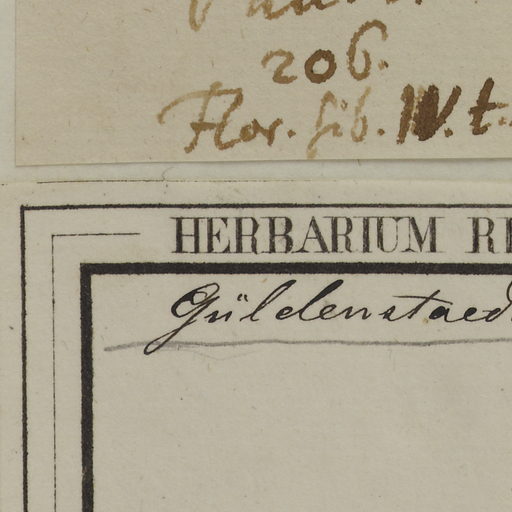 206.
Flor. sib. IV. t.
HERBARIUM
Güldenstaed